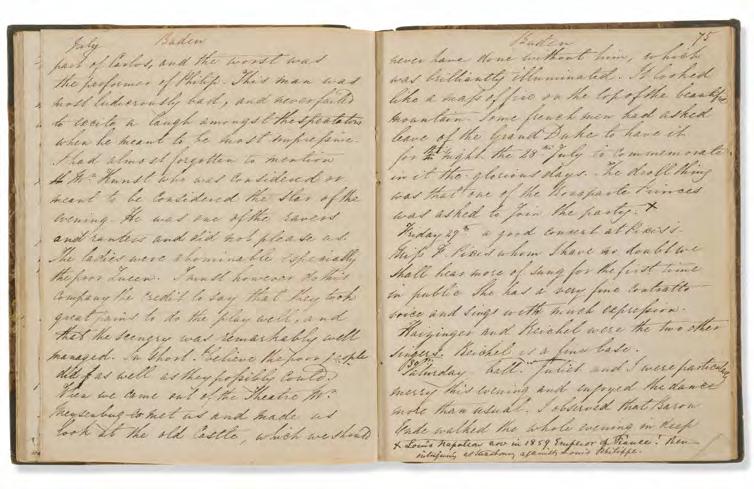 July Baden
part of Carlos, and the worst was
the performer of Philip. This man was
most ludicrously bad, and never failed
to excite a laugh amongst the spectators
when he meant to be most impressive.
I had almost forgotten to mention
Mr Kunst who was considered or
meant to be considered the Star of the
evening. He was one of the ravers
and ranters and did not please us.
The ladies were abominable especially
the poor Queen. I must however do this
company the credit to say that they took
great pains to do the play well, and
that the scenery was remarkably well
managed. In short I believe the poor people
did as well as they possibly could.
When we came out of the Theatre Mr
Meysenbug met us and made us
look at the old Castle, which we should
Baden 75
never have done without him, which
was brilliantly illuminated. It looked
like a mass of fire on the top of the beautiful
mountain. Some french men had asked
leave of the Grand Duke to have it
for night the 28th July to commemorate
in it the glorious days. The droll thing
was that one of the Bonaparte Princes
was asked to join the party. x
Friday 29th a good concert at Pixis's.
Miss F. Pixis whom I have no doubt we
shall hear more of sung for the first time
in public She has a very fine contralto
voice and sings with much expression.
Haizinger and Reichel were the two other
singers. Reichel is a fine base.
30th
Saturday ball. Juliet and I were particularly
merry this evening and enjoyed the dance
more than usual. I observed that Baron
Ende walked the whole evening in deep
x Louis Napoleon now in 1859 Emperor of France! Then
intriguing at Strasbourg against Louis Philippe.